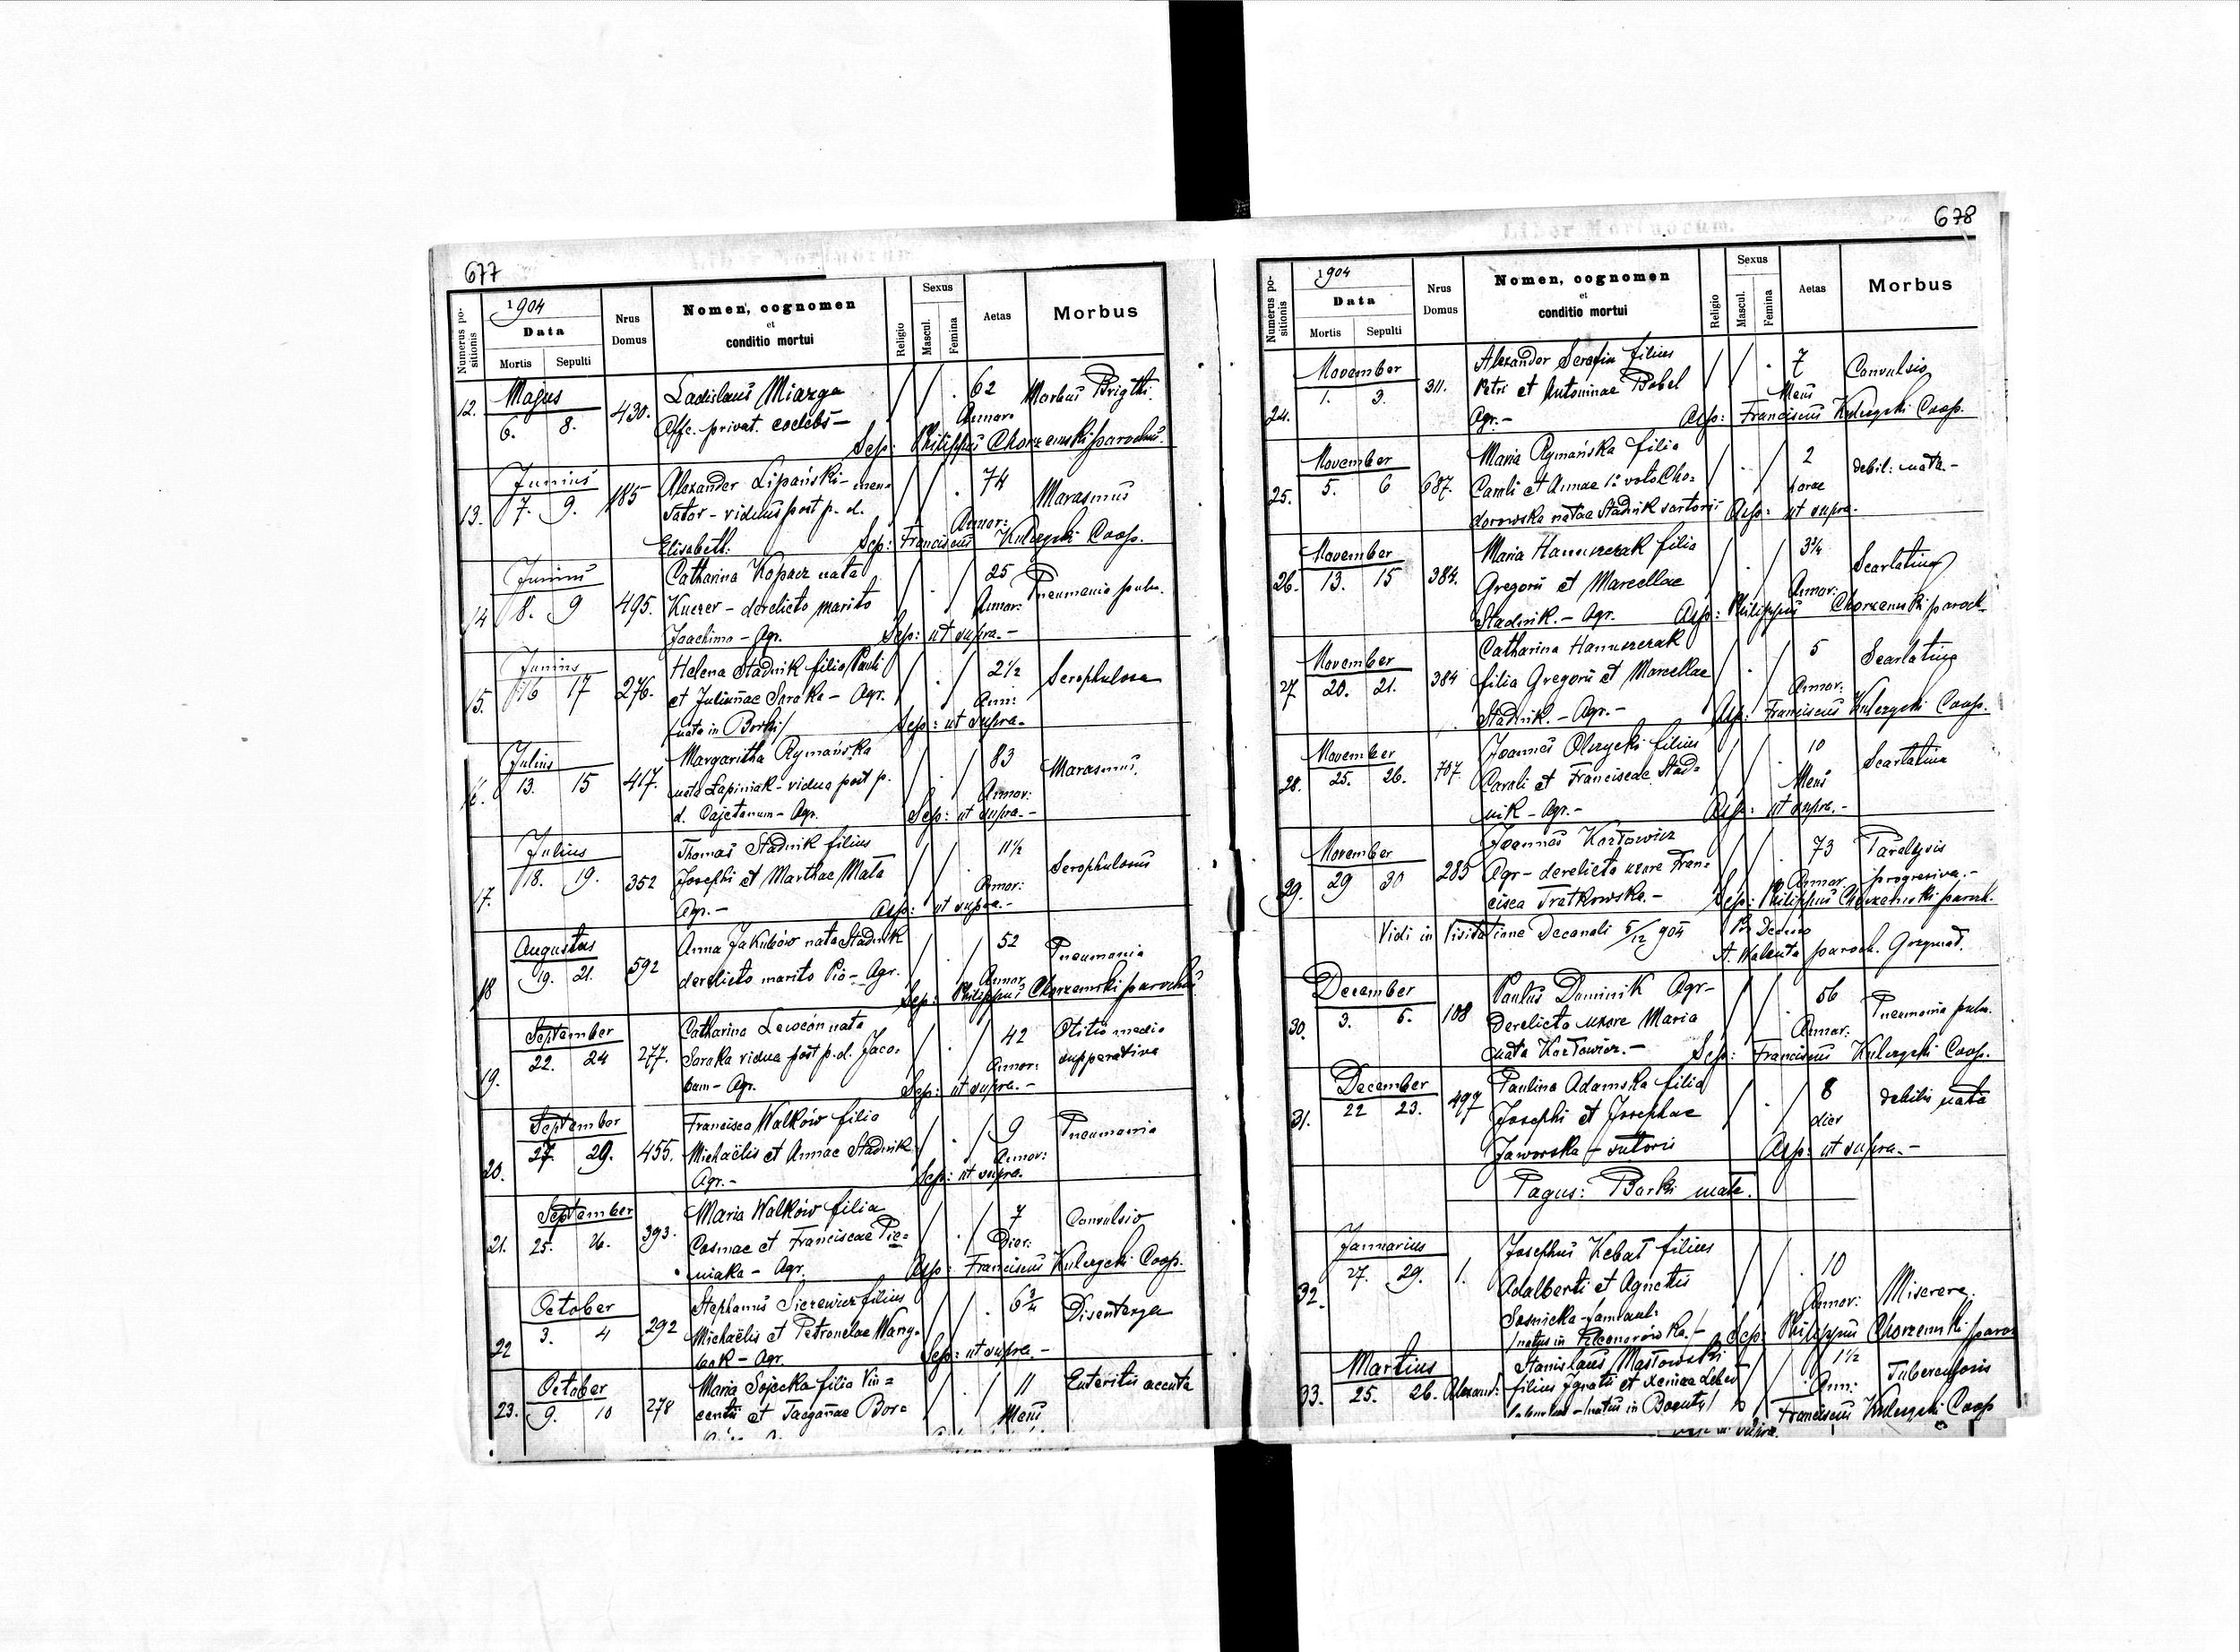 677
Liber Mortuorum
Numerus positionis
1904
Data
Mortis Sepulti
Nrus Domus
Nomen, cognomen
et
conditio mortui
Religio
Sexus
Mascul. Femina
Aetas
Morbus
12. Majus 6. 8. 430. Ladislaus Miazga 62 Morbus Brigthi.
Offc. privat. coelebs — Annor.
Sep: Philippus Chorzemski parochus.
13. Junius 7. 9. 185 Alexander Lipański - men= 74 Marasmus
sator - viduus post p. d. Annor:
Elisabeth. Sep: Franciscus Kulczycki Coop.
14 Junius 8. 9 495. Catharina Kopacz nata 25 Pneumonia pulm.
Kuczer - derelicto marito Annor:
Joachimo - Agr. Sep: ut supra. —
15. Junius 16 17 276. Helena Stadnik filia Pauli 2 1/2 Scrophulosa
et Juliannae Saraka - Agr. Ann:
/nata in Borki/ Sep: ut supra.
16. Julius 13. 15 417. Margaritha Rymańska 83 Marasmus.
nata Łapiniak - vidua post p. Annor:
d. Cajetanum - Agr. Sep: ut supra. —
17. Julius 18. 19. 352 Thomas Stadnik filius 11 1/2 Scrophulosus
Josephi et Marthae Mata Annor:
Agr. — Asp: ut supra. —
18 Augustus 19. 21. 592 Anna Jakubów nata Stadnik 52 Pneumonia
derelicto marito Pio - Agr. Annor.
Sep: Philippus Chorzemski parochus
19. September 22. 24 277. Catharina Lewcón nata 42 Otitis media
Saraka vidua post p. d. Jaco= Annor: supperativa
bum - Agr. Sep: ut supra. —
20. September 27. 29. 455. Francisca Walków filia 9 Pneumonia
Michaëlis et Annae Stadnik Annor:
Agr. — Sep: ut supra.
21. September 25. 26. 393. Maria Walków filia 7 Convulsio
Cosmae et Franciscae Pie= Dier:
niaka - Agr. Asp: Franciscus Kulczycki Coop.
22 October 3. 4 292 Stephanus Siczewicz filius 6 3/4 Disenterya
Michaëlis et Petronelae Wary=
bok - Agr. Sep: ut supra. —
23. October 9. 10 278 Maria Sojecka filia Vin= 11 Enteritis accuta
centii et Tacyannae Bor= Mens
678
Liber Mortuorum.
Numerus positionis
1904
Data
Mortis Sepulti
Nrus Domus
Nomen, cognomen
et
conditio mortui
Religio
Sexus
Mascul. Femina
Aetas
Morbus
24. November 1. 3. 311. Alexander Serafin filius 7 Convulsio
Petri et Antoninae Bobel Mens
Agr. — Asp: Franciscus Kulczycki Coop.
25. November 5. 6 687. Maria Rymańska filia 2 debil: nata. —
Caroli et Annae 1º voto Cho= horae
dorowska natae Stadnik sartoris Asp: ut supra.
26. November 13. 15 384. Maria Hanuszczak filia 3 1/4 Scarlatina
Gregorii et Marcellae Annor:
Stadnik. — Agr. Asp: Philippus Chorzemski paroch.
27. November 20. 21. 384 Catharina Hanuszczak 5 Scarlatina
filia Gregorii et Marcellae Annor:
Stadnik. — Agr. — Asp: Franciscus Kulczycki Coop.
28. November 25. 26. 707. Joannes Olczycki filius 10 Scarlatina
Caroli et Franciscae Stad= Mens
nik - Agr. — Asp: ut supra. —
29. November 29 30 285 Joannes Kozłowicz 73 Paralysis
Agr - derelicta uxore Fran= Annor. progresiva. —
cisca Tratkowska. — Sep: Philippus Chorzemski paroch.
Vidi in Visitatione Decanali 5/12 904 Pro Decano
A. Walenta paroch. Grzymał.
30. December 3. 5. 108 Paulus Dominik Agr — 56 Pneumonia pulm.
derelicta uxore Maria Annor:
nata Kozłowicz. — Sep: Franciscus Kulczycki Coop.
31. December 22 23. 497 Paulina Adamska filia 8 debilis nata
Josephi et Josephae dier
Jaworska - sutoris Asp: ut supra. —
Pagus: Borki małe.
32. Januarius 27. 29. 1. Josephus Kebał filius 10 Miserere.
Adalberti et Agnetis Annor:
Sosnicka - famuli
/natus in Eleonorówka./ — Sep: Philippus Chorzemski paroc
33. Martius 25. 26. Alexand: Stanislaus Masłowski 1 1/2 Tuberculosis
filius Ignatii et Ann:
/natus in Boguty/ Franciscus Kulczycki Coop
ut supra.